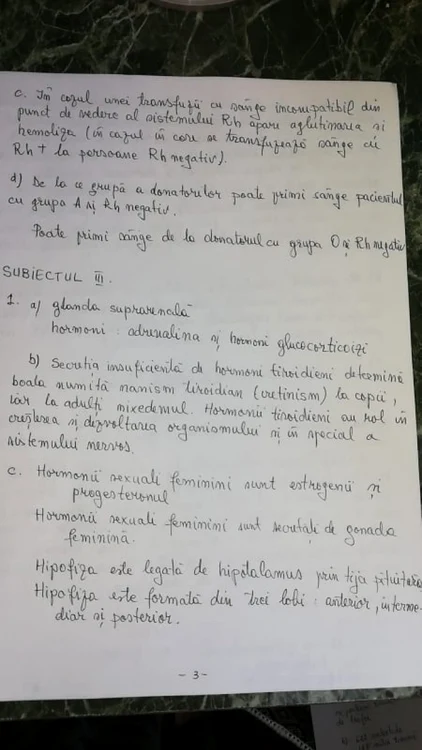 c. În cazul unei transfuzii cu sânge incompatibil din
punct de vedere al sistemului Rh apare aglutinarea si
hemoliza (în cazul în care se transfuzează sânge cu
Rh + la persoane Rh negativ).
d) De la ce grupă a donatorilor poate primi sânge pacientul
cu grupa A și Rh negativ.
Poate primi sânge de la donatorul cu grupa O și Rh negativ
SUBIECTUL III.
1. a) glanda suprarenală
hormoni : adrenalina și hormoni glucocorticoizi
b) Secreția insuficientă de hormoni tiroidieni determină
boala numită nanism tiroidian (cretinism) la copii,
iar la adulți mixedemul. Hormonii tiroidieni au rol în
creșterea și dezvoltarea organismului și în special a
sistemului nervos.
c. Hormonii sexuali feminini sunt estrogenii și
progesteronul
Hormonii sexuali feminini sunt secretați de gonada
feminină.
Hipofiza este legată de hipotalamus prin tija pituitară
Hipofiza este formată din trei lobi : anterior, interme-
diar și posterior.
- 3 -